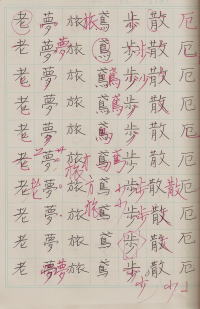 厄厄厄厄厄厄厄厄厄厄
散散散散散散散散散散
歩歩歩歩歩歩歩歩歩歩
鳶鳶鳶鳶鳶鳶鳶鳶鳶鳶
旅旅旅旅旅旅旅旅旅旅
夢夢夢夢夢夢夢夢夢夢
老老老老老老老老老老